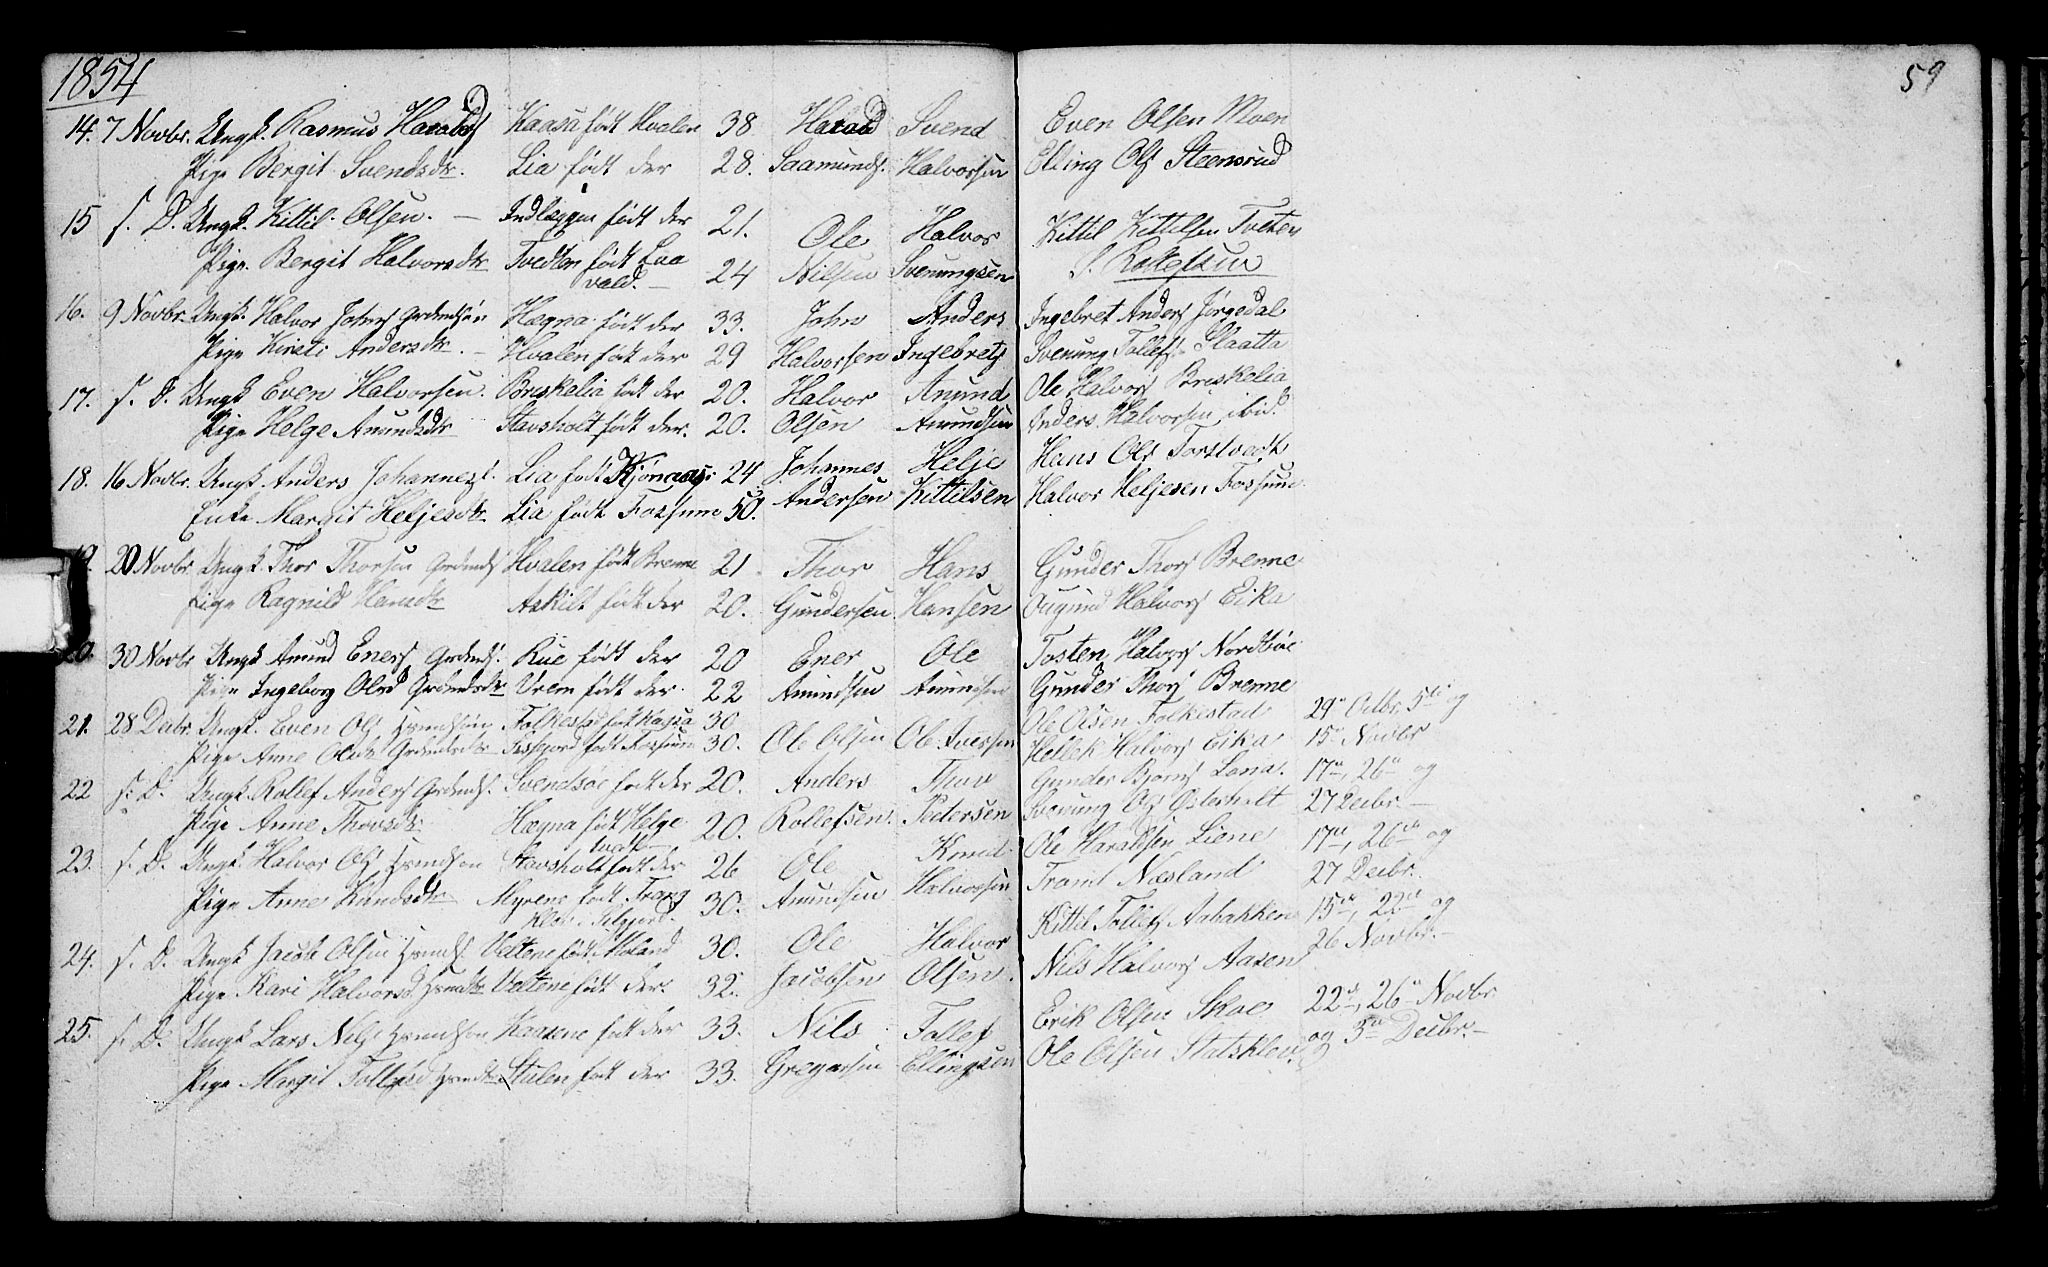 1854
59
14. 7 Novbr. Ungk. Rasmus Haralds Kaasa født Hvalen 38 Harald Svend Even Olsen Moen
Pige Bergit Svendsdtr. Lia født der 28. Saamunds. Halvorsen Elling Ols Steensrud
15 s. D. Ungk. Kittil Olsen. — Indlæggen født der 21. Ole Halvor Kittil Kittelsen Tveten
Pige. Bergit Halvorsdtr Tvedten født 24 Nilsen Svenungsen S. Rollefsen
vald. —
16. 9 Novbr. Ungk. Halvor Johns Grdmdsøn Hægna født der 33. John Anders Ingebret Anders Jørgedal
Pige Kirsti Andersdtr. — Hvalen født der 29 Halvorsen Ingebrets Svenung Tollefs. Slaatta
17. s. D. Ungk Even Halvorsen. Briskelia født der 20. Halvor Anund Ole Halvors Briskelia
Pige Helge Anundsdtr Stavsholt født der. 20. Olsen Anundsen Anders Halvorsen ibid.
18. 16 Novbr. Ungk. Anders Johannes. Lia født Kjønaas 24 Johannes Helje Hans Ols
Enke Margit Heljesdtr. Lia født Fossum 50. Andersen Kittilsen Halvor Heljesen Fossum
19. 20 Novbr. Ungk. Thor Thorsen Grdmds Hvalen født Brenne 21 Thor Hans Gunder Thors Brenne
Pige Ragnild Hansdtr Askilt født der 20. Gundersen Hansen Halvors Eika
20. 30 Novbr Ungk Amund Eners Grdmds. Rue født der 20 Ener Ole Tosten Halvors Nordbøe
Pige Ingeborg Olsd Grdmdsdtr Uren født der. 22 Amundsen Amundsen Gunder Thors Brenne
21. 28 Decbr. Ungk. Even Ols Hsmdsøn Folkestad født Kaasa 30 Ole Olsen Folkestad 29de Octbr, 5te og
Pige Anne Olsdtr Grdmdsdtr født Fossum 30. Ole Olsen Ole Hellek Halvors Eika 15de Novbr
22 s. D. Ungk. Rollef Anders Grdmds. Svendsøe født der 20. Anders Thor Gunder Bjørns Lona. 17de, 26de og
Pige Anne Thorsdtr. Hægna født Helge 20. Rollefsen. Pedersen Svenung Ols Østerholt 27 Decbr. —
23. s. D. Ungk. Halvor Ols Hsmdsøn Stavsholt født der 26 Ole Knud Ole Haraldsen Liene 17de, 26de og
Pige Anne Knudsdtr. Myrene født 30. Amundsen Halvorsen Næsland 27 Decbr.
24. s. D. Ungk Jacob Olsen Hsmds. Veltene født Moland 30. Ole Halvor Kittil Tollefs Aabakken 15de, 22de og
Pige Kari Halvorsd Hsmdsdtr Veltene født der. 32. Jacobsen Olsen. Nils Halvors Aasen 26 Novbr. —
25. s. D. Ungk Lars Nils Hsmdsøn Kaasene født der 33. Nils Tollef Erik Olsen Skoe 22de, 26de Novbr.
Pige Margit Tollefsd Hsmdsdtr Stulen født der 33. Gregarsen Ellingsen Ole Olsen og 3de Decbr. —